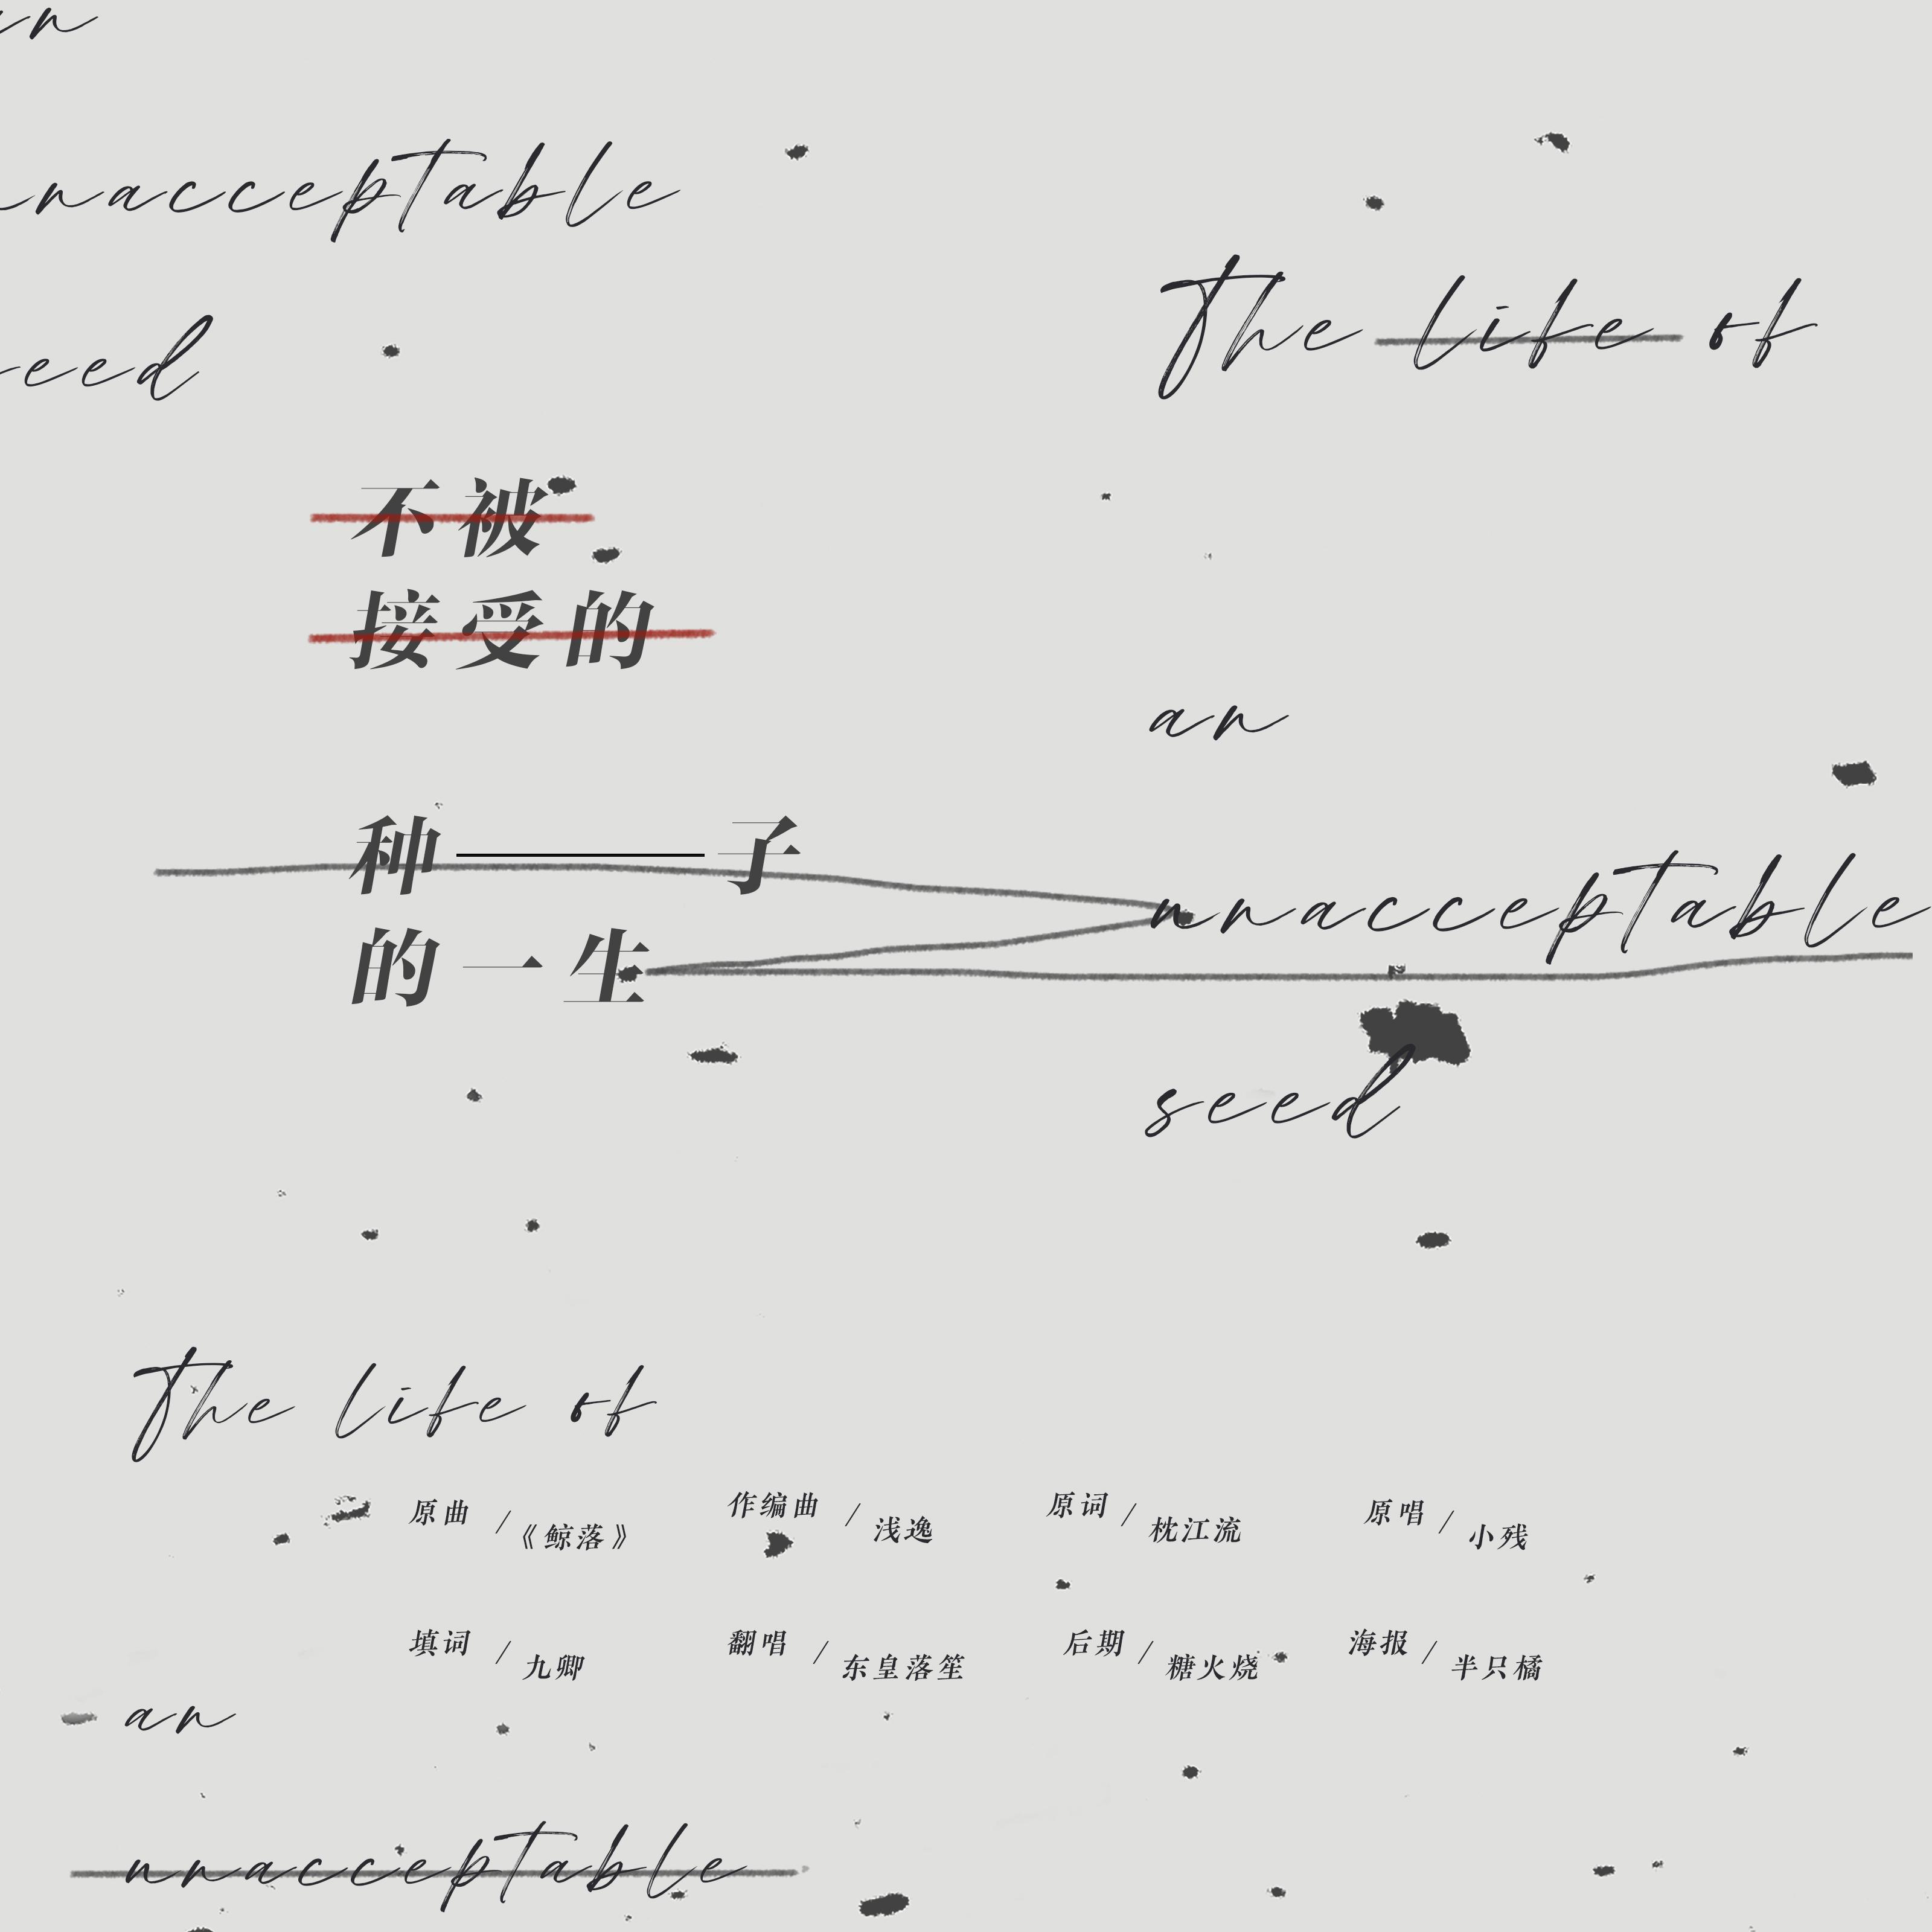 unacceptable
The life of
不被
接受的
an
种 子
unacceptable
的一生
seed
The life of
原曲 / 《鲸落》
作编曲 / 浅逸
原词 / 枕江流
原唱 / 小残
填词 / 九卿
翻唱 / 东皇落笙
后期 / 糖火烧
海报 / 半只橘
an
unacceptable